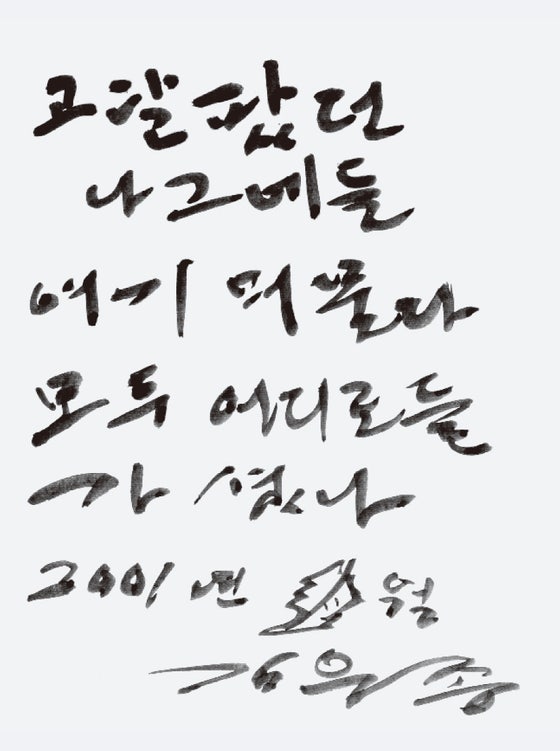 고달팠던
나그네들
여기 머물다
모두 어디로들
가셨나
2001년 월